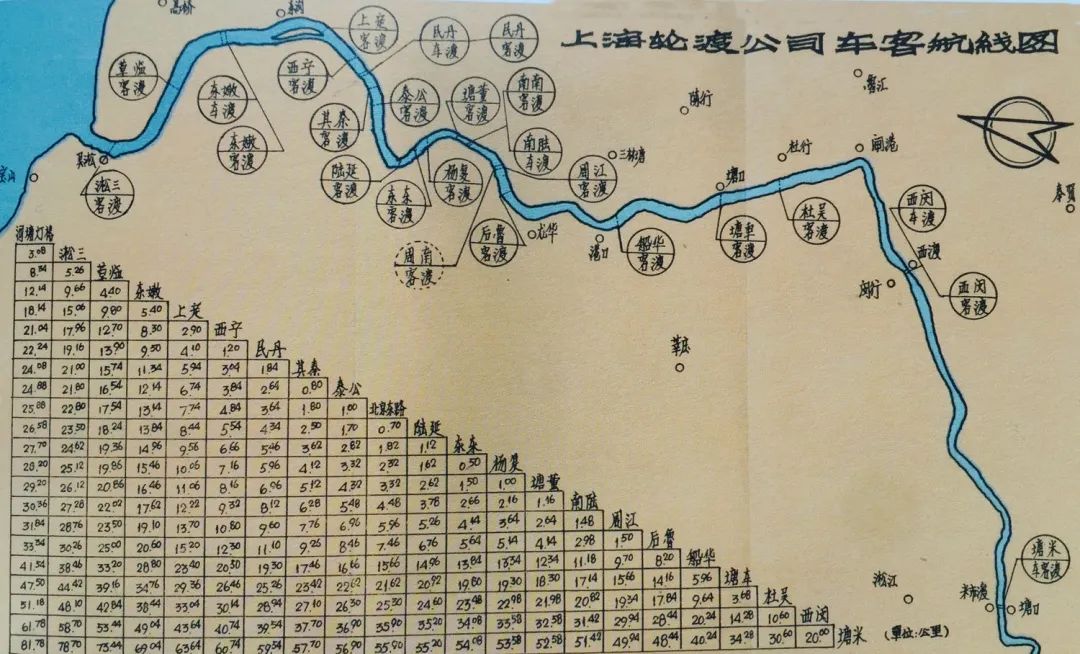 上海轮渡公司车客航线图
高桥
东沟
上定 客渡
民丹 车渡
民丹 客渡
草临 客渡
东嫩 车渡
西宁 客渡
泰公 客渡
塘董 客渡
南南 客渡
陈行
鲁江
东嫩 客渡
其秦 客渡
南陆 车渡
三林塘
杜行
闸港
吴淞
淞三 客渡
陆延 客渡
东东 客渡
杨复 客渡
周江 客渡
塘口
宝山
周南 客渡
后鲁 客渡
龙华
港口
船华 客渡
塘车 客渡
杜吴 客渡
西闵 车渡
奉贤
西渡
闵行
西闵 客渡
莘庄
松江
塘米 车客渡
米市渡
塘口
河塘灯桩
3.08 淞三
8.34 5.26 草临
12.14 9.66 4.40 东嫩
18.14 15.06 9.80 5.40 上定
21.04 17.96 12.70 8.30 2.90 西宁
22.24 19.16 13.90 9.50 4.10 1.20 民丹
24.08 21.00 15.74 11.34 5.94 3.04 1.84 其秦
24.88 21.80 16.54 12.14 6.74 3.84 2.64 0.80 泰公
25.88 22.80 17.54 13.14 7.74 4.84 3.64 1.80 1.00 北京东路
26.58 23.50 18.24 13.84 8.44 5.54 4.34 2.50 1.70 0.70 陆延
27.70 24.62 19.36 14.96 9.56 6.66 5.46 3.62 2.82 1.82 1.12 东东
28.20 25.12 19.86 15.46 10.06 7.16 5.96 4.12 3.32 2.32 1.62 0.50 杨复
29.20 26.12 20.86 16.46 11.06 8.16 6.96 5.12 4.32 3.32 2.62 1.50 1.00 塘董
30.36 27.28 22.02 17.62 12.22 9.32 8.12 6.28 5.48 4.48 3.78 2.66 2.16 1.16 南陆
31.84 28.76 23.50 19.10 13.70 10.80 9.60 7.76 6.96 5.96 5.26 4.14 3.64 2.64 1.48 周江
33.34 30.26 25.00 20.60 15.20 12.30 11.10 9.26 8.46 7.46 6.76 5.64 5.14 4.14 2.98 1.50 后鲁
41.54 38.46 33.20 28.80 23.40 20.50 19.30 17.46 16.66 15.66 14.96 13.84 13.34 12.34 11.18 9.70 8.20 船华
47.50 44.42 39.16 34.76 29.36 26.46 25.26 23.42 22.62 21.62 20.92 19.80 19.30 18.30 17.14 15.66 14.16 5.96 塘车
51.18 48.10 42.84 38.44 33.04 30.14 28.94 27.10 26.30 25.30 24.60 23.48 22.98 21.98 20.82 19.34 17.84 9.64 3.68 杜吴
61.78 58.70 53.44 49.04 43.64 40.74 39.54 37.70 36.90 35.90 35.20 34.08 33.58 32.58 31.42 29.94 28.44 20.24 14.28 10.60 西闵
81.78 78.70 73.44 69.04 63.64 60.74 59.54 57.70 56.90 55.90 55.20 54.08 53.58 52.58 51.42 49.94 48.44 40.24 34.28 30.60 20.00 塘米
(單位:公里)